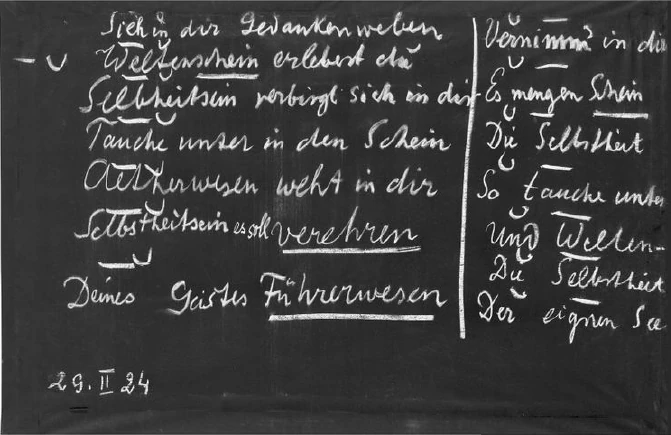 Sieh in dir Gedankenweben
Weltenschein erlebest du
Selbstheitsein verbirgt sich in dir
Tauche unter in den Schein
Aetherwesen weht in dir
Selbstheitsein es soll verehren
Deines Geistes Führerwesen
29. II 24
Vernimm in die
Es mengen Schein
Die Selbstheit
So tauche unter
Und Welten-
Die Selbstheit
Der eignen See